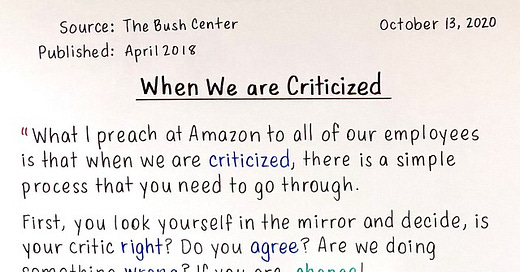 Source: The Bush Center October 13, 2020
Published: April 2018
When We are Criticized
"What I preach at Amazon to all of our employees
is that when we are criticized, there is a simple
process that you need to go through.
First, you look yourself in the mirror and decide, is
your critic right? Do you agree? Are we doing
something wrong? If you are, change!